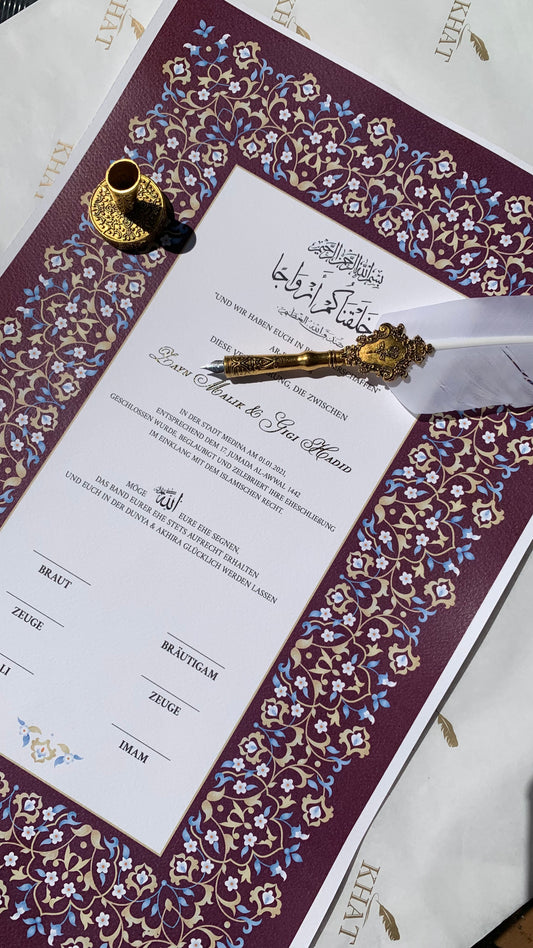 KHAT
KHAT
KHAT
KHAT
بسم الله الرحمن الرحيم
خلقناكم أزواجا
صدق الله العظيم
"UND WIR HABEN EUCH IN
SCHAFFEN"
DIESE
UNG, DIE ZWISCHEN
Zayn Malik & Gigi Hadid
IN DER STADT MEDINA AM 01.01.2021,
ENTSPRECHEND DEM 17. JUMADA AL-AWWAL 1442
GESCHLOSSEN WURDE, BEGLAUBIGT UND ZELEBRIERT IHRE EHESCHLIEßUNG
IM EINKLANG MIT DEM ISLAMISCHEN RECHT.
MÖGE الله EURE EHE SEGNEN,
DAS BAND EURER EHE STETS AUFRECHT ERHALTEN
UND EUCH IN DER DUNYA & AKHIRA GLÜCKLICH WERDEN LASSEN
BRAUT
BRÄUTIGAM
ZEUGE
ZEUGE
LI
IMAM
KHAT